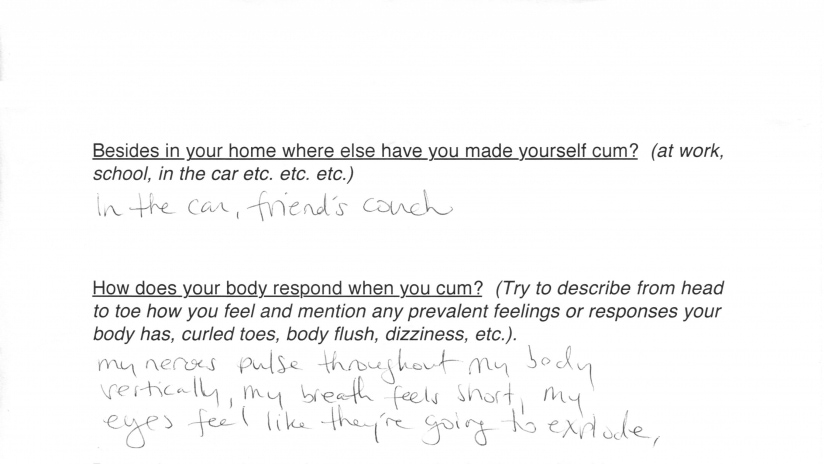 Besides in your home where else have you made yourself cum? (at work,
school, in the car etc. etc. etc.)
In the car, friend's couch
How does your body respond when you cum? (Try to describe from head
to toe how you feel and mention any prevalent feelings or responses your
body has, curled toes, body flush, dizziness, etc.).
my nerves pulse throughout my body
vertically, my breath feels short, my
eyes feel like they're going to explode,